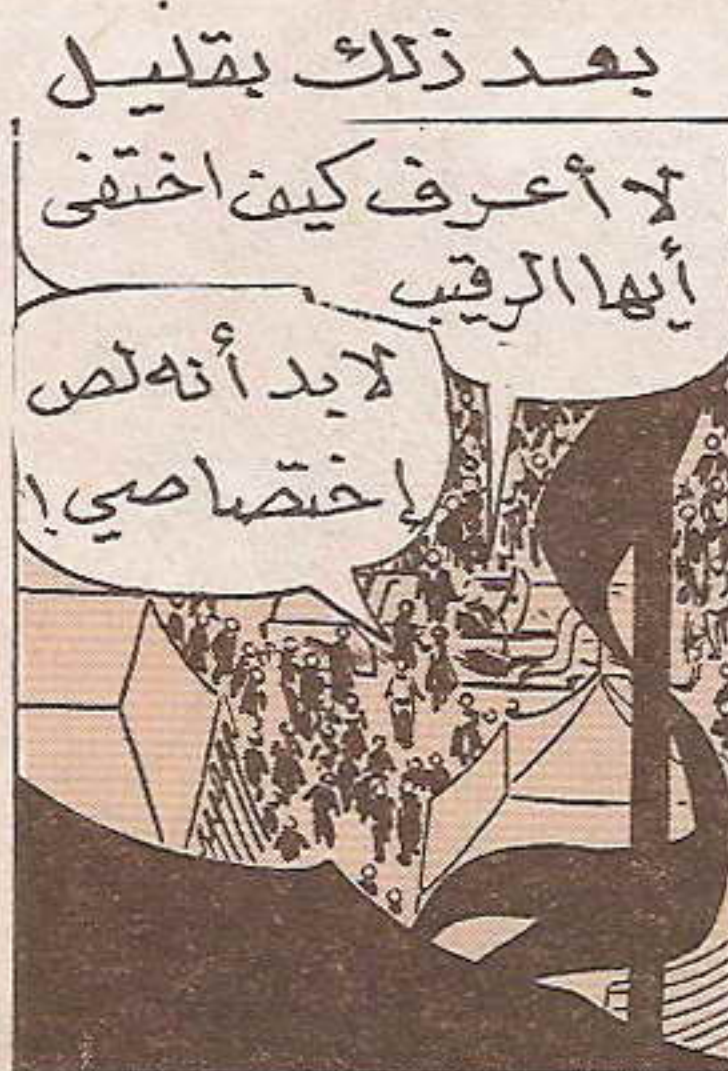 بعد ذلك بقليل
لا أعرف كيف اختفى
أيها الرقيب
لابد أنه لص
إختصاصي!